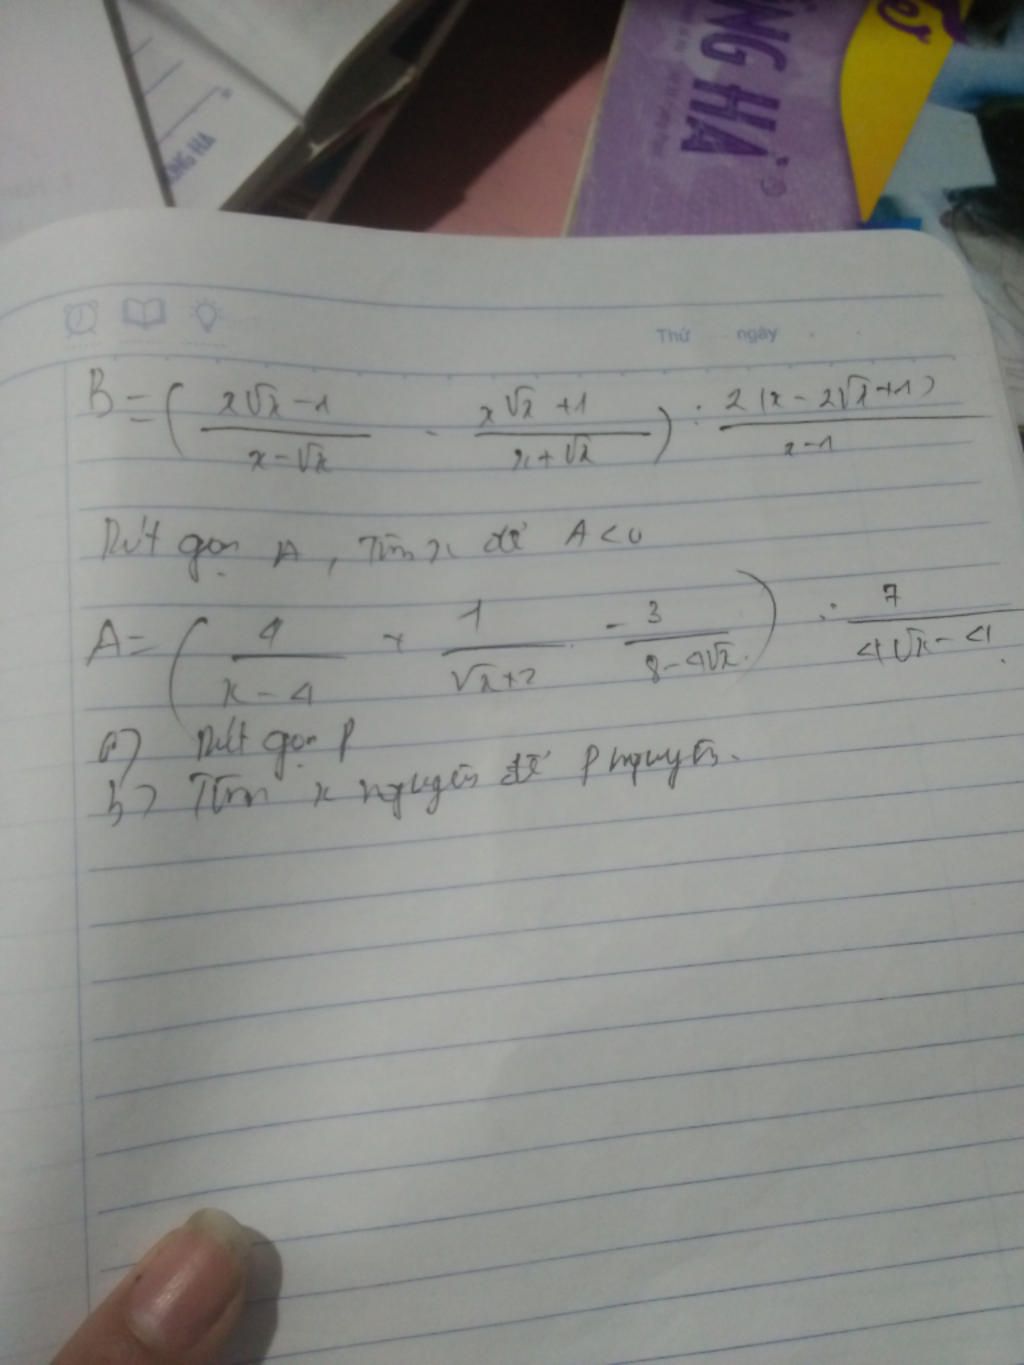 ỒNG HÀ
ỒNG HÀ
Thứ ngày
B = ( x√x - 1 / x - √x - x√x + 1 / x + √x ) : 2(x - 2√x + 1) / x - 1
Rút gọn A, Tìm x để A < 0
A = ( 4 / x - 4 + 1 / √x + 2 - 3 / 8 - 4√x ) : 7 / 4√x - 4
a) Rút gọn P
b) Tìm x nguyên để P nguyên.